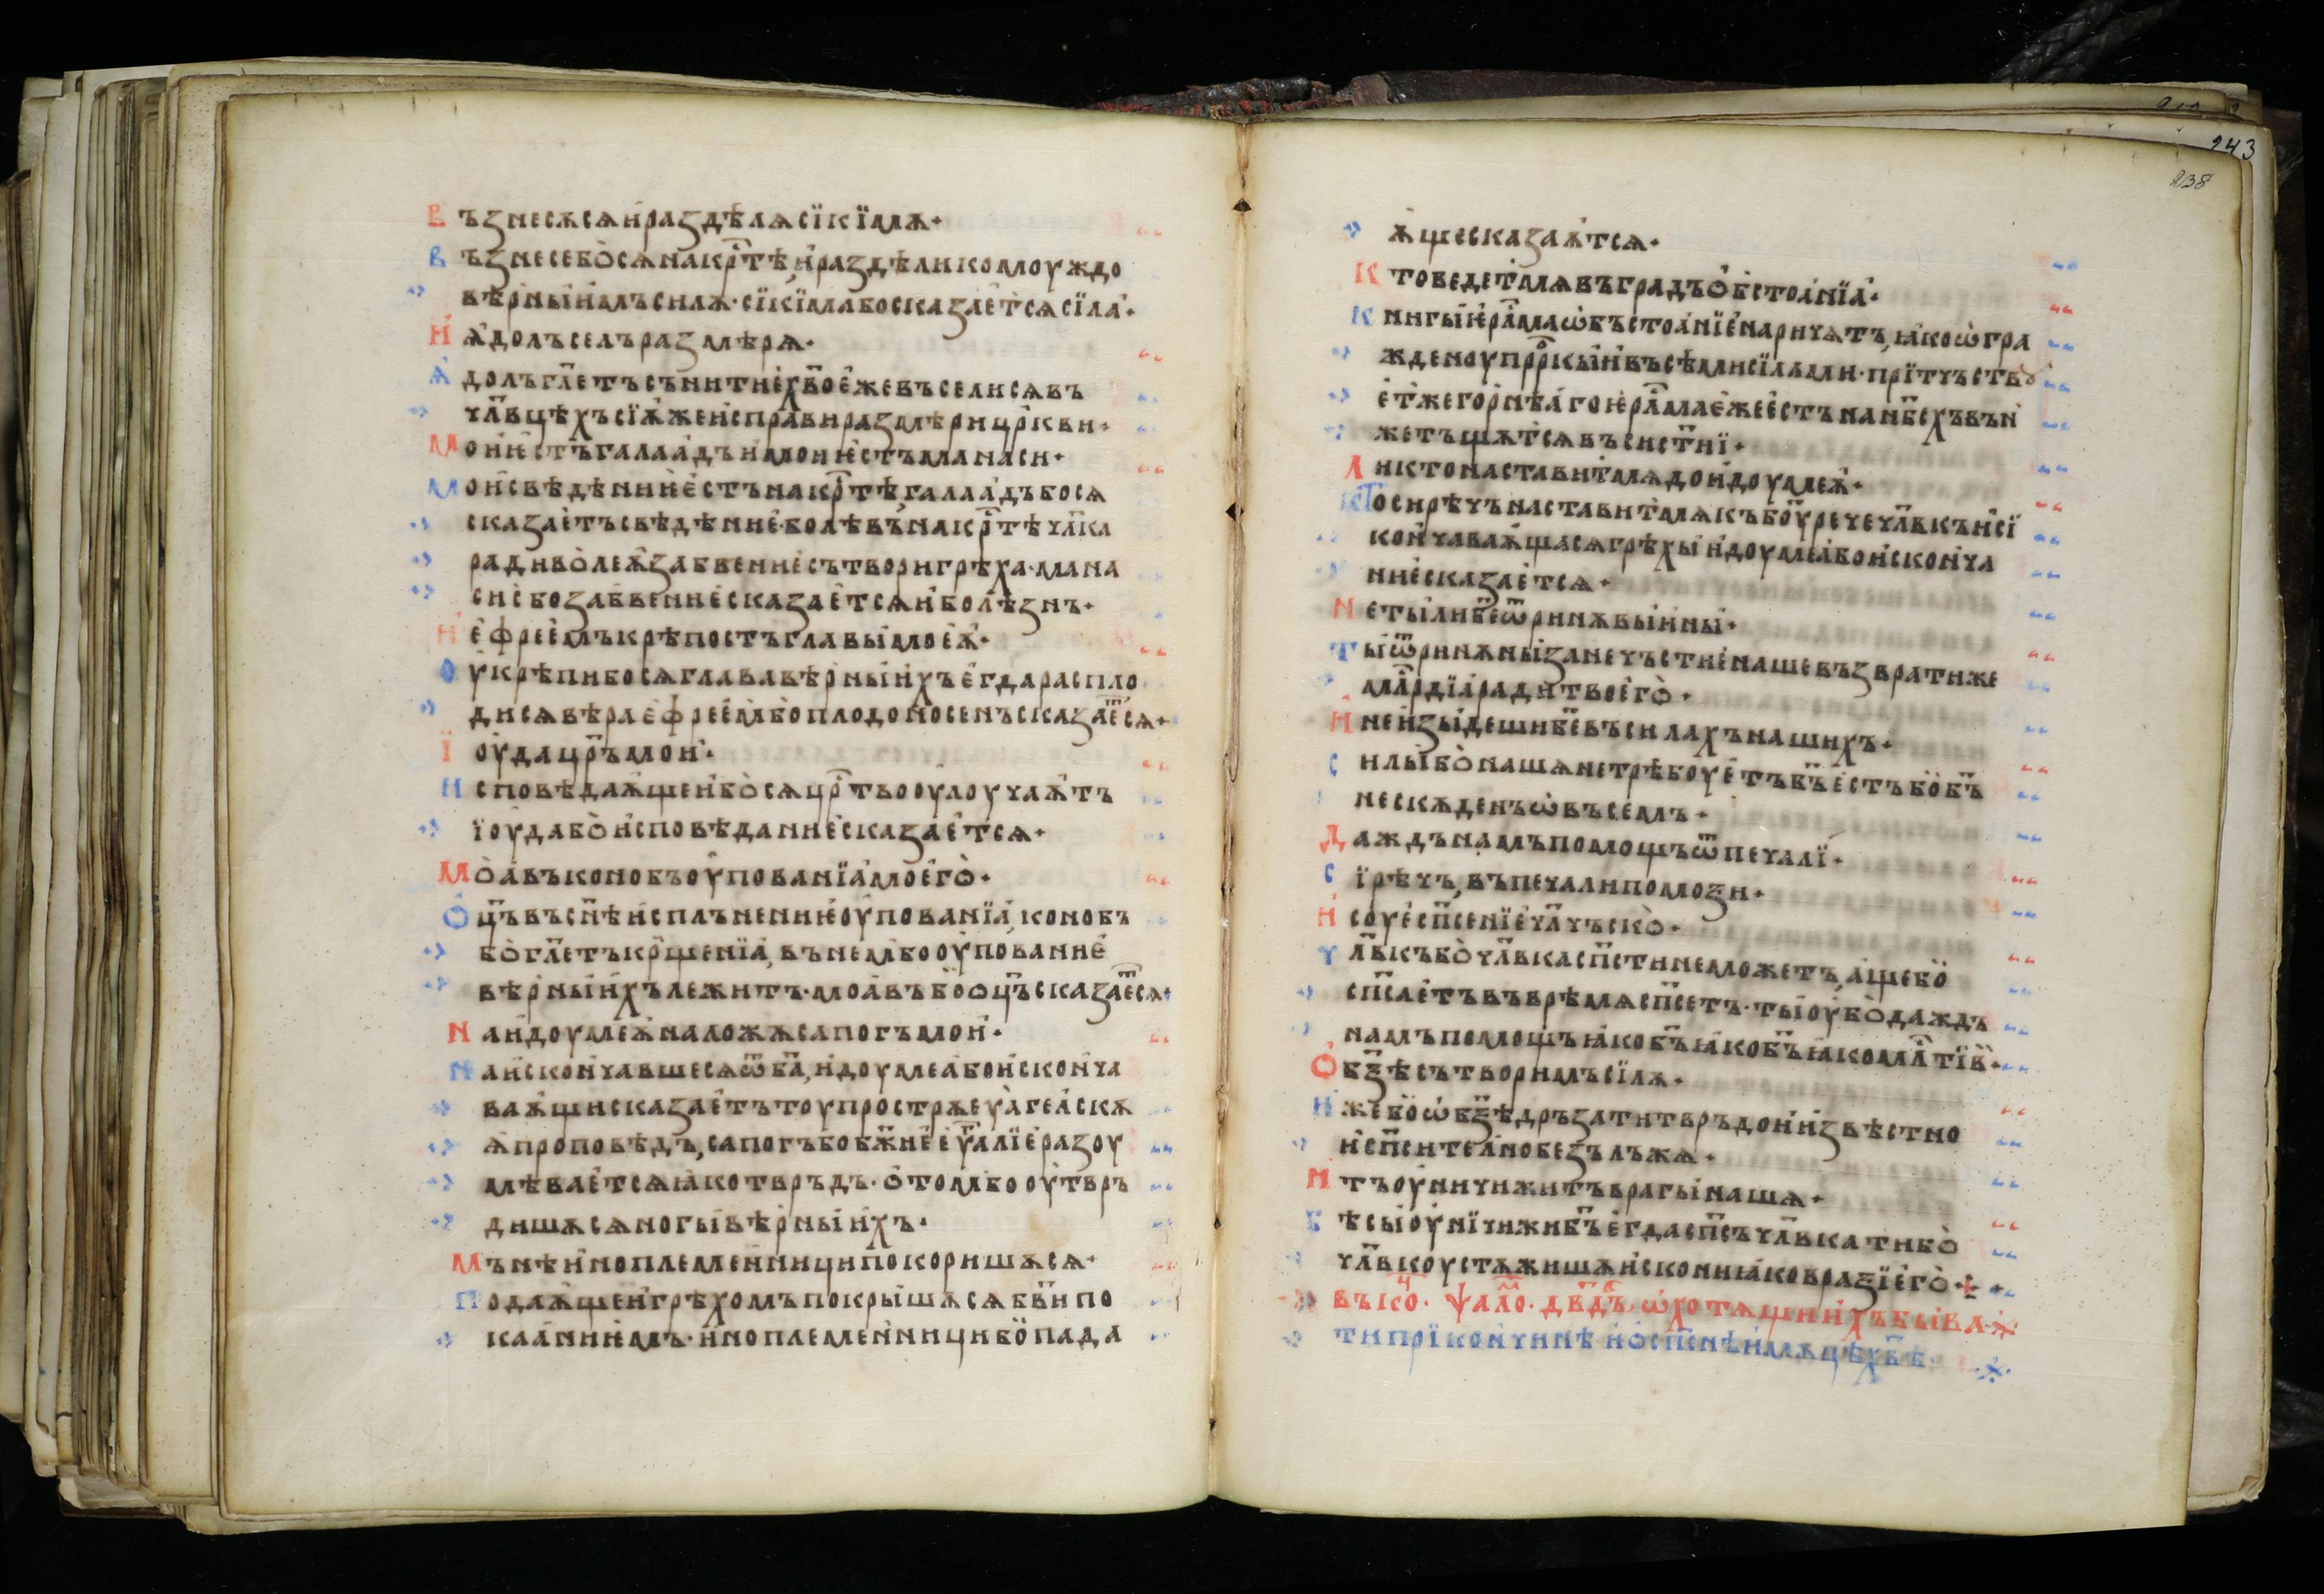 Възнесѫсѧ и҆раздѣлѧсїкїмѫ·
Възнесебо̀сѧнакр҇тѣ, и҆раздѣликомоуждо
вѣрныи҆мъсилѫ·сїкїмабосказае҆тсѧсїла̀·
И҆ ѫ҆долъселъразмѣрѫ·
Ѫ҆долъгл҃етъсънитїе҆х҃во е҆жевъселисѧвъ
чл҃вцѣхъсїѫ҆жеи҆справиразмѣрицр҃кви·
Мои҆е҆стъгалаа҆дъи҆мои҆е҆стъманаси·
Мои҆свѣдѣние҆е҆стънакр҇тѣ, галаа҆дъбосѧ
сказае҆тъсвѣдѣние҆·болѣвъ̀накр҇тѣчл҃ка
радиво̀леѫ҆забвение҆сътворигрѣха·мана
сиѐбозабвение҆сказае҆тсѧи҆болѣзнъ·
И҆ е҆фрее҆мъкрѣпостъглавымоеѫ҆·
Оу҆крѣпибосѧглававѣрныи҆хъе҆гдарасплo
дисѧвѣрае҆фрее҆мбо̀плодоно̀сенъсказае҆т҇сѧ·
Їоу҆дацр҃ъмои҆·
Исповѣдаѫ҆щеи҆бо̀сѧцр҇твооу҆лоучаѫ҆тъ
їоу҆дабо̀и҆сповѣданиѐсказае҆тсѧ·
Моа҆въконобъоу҆пованїа҆моего̀·
Оц҃ъвъсп҃ѣи҆сплънение҆оу҆пованїа҆, конобъ
бо̀гл҃етъкр҃щенїа҆, въне мбооу҆пованиѐ
вѣрныи҆хълежитъ·моа҆въбо̀оц҃ъсказае҆т҇сѧ·
Наи҆доумеѫ҆наложѫсапогъмои҆·
Наи҆скончавшесѧѿба҃, и҆доумеа҆бои҆сконча
ваѫ҆щисказае҆тътоупрострѫеу҆аг҃елскѫ
ѫ҆проповѣдъ, сапогъбобж҃иее҆у҆а҃лїеразоу
мѣвае҆тсѧꙗ҆котвръдъ·о҆томбооу҆твръ
дишѫсѧногывѣрныи҆хъ·
Мънѣи҆ноплеменниципокоришѫсѧ·
Подаѫ҆щеи҆грѣхомъпокрышѫсѧбв҃ипо
каа҆нии҆мъ·и҆ноплеменницибо̀пада
ѫ҆щесказаѫ҆тсѧ·
Ктоведетмѧвъградъо҆бстоа҆нїа҆·
Книгыи҆ер҃лмаѡ҆бъстоа҆нїе҆наричѫтъ, ꙗ҆коѡ҆гра
жденоупрр҇окыи҆въсѣмисїлами·прїтъств
е҆тжегорнѣа҆гоі҆ер҃лмаеже е҆стънанб҃схъвън
жетъщѫтсѧвъсист҃нї·
Ликтонаставитмѧдои҆доумеѫ҆·
Ктосирѣчънаставитмѧкъбо҃у речечл҃вкъи҆сї
кончаваѫ҆щасѧгрѣхыи҆доумеа҆бои҆сконча
ниѐсказае҆тсѧ·
Нетылиб҃еѿринѫвыи҆ны·
Тыѿринѫнызанечъстиѐнашевъзвратиже
мл҃рдїа҆радитвоего̀·
И҆неи҆зыдешиб҃евъсилахънашихъ·
Силыбо̀нашѫнетрѣбоуе҆тъб҃ъе҆стъбо̀б҃ъ
нескѫденъѡ҆въсемъ·
Даждънамъпомощъѿпечалї·
Сїрѣчъ, въпечалипомози·
И҆соуе҆сп҃сенїе҆чл҃чъско̀·
Чл҃вкъбо̀чл҃вкасп҃стинеможетъ, а҆щебо̀
сп҃сае҆тъвъврѣмѧсп҃сетъ·тыоу҆бо̀даждъ
намъпомощъꙗ҆коб҃ъꙗ҆коб҃ъꙗ҆комл҇тїв·
Обз҃ѣсътворимъсїлѫ·
И҆жебо̀ѡ҆бз҃ѣдръзатитвръдои҆и҆звѣстно
и҆сп҃ситеа҆нобезълъжѫ·
И҆тъоу҆ничижитъврагынашѫ·
Бѣсыоу҆нїчижиб҃ъе҆гдасп҃съчл҃вкатибо̀
чл҃вкоустѫжишѫи҆скониꙗ҆ковразїего̀·
Въко̀ч·ѱал҇мо·дв҃дъ҇·ѡ҆хотѧщиихъбываѫ
типрїкончинѣ·и҆о҆сп҃снѣи҆мѫщѣхв҃ѣ·
238
243